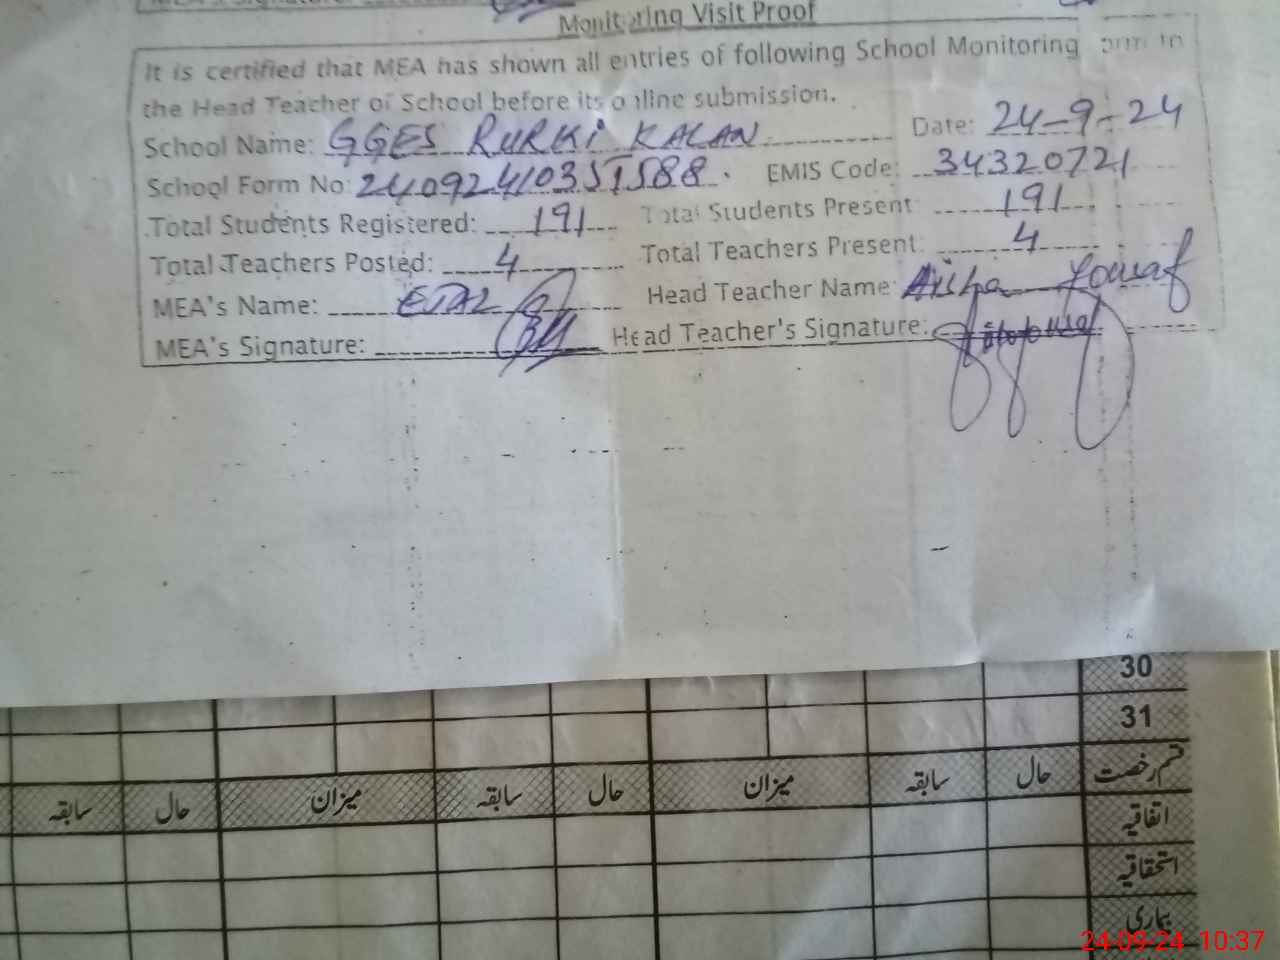 Monitoring Visit Proof
It is certified that MEA has shown all entries of following School Monitoring Form to
the Head Teacher of School before its online submission.
School Name: GGES RURKI KALAN Date: 24-9-24
School Form No: 24092410351588 EMIS Code: 34320721
Total Students Registered: 191 Total Students Present: 191
Total Teachers Posted: 4 Total Teachers Present: 4
MEA's Name: Head Teacher Name: Aisha
MEA's Signature: Head Teacher's Signature:
30
31
قسم رخصت حال سابقہ میزان حال سابقہ میزان حال سابقہ
اتفاقیہ
استحقاقیہ
بیماری
24-09-24 10:37